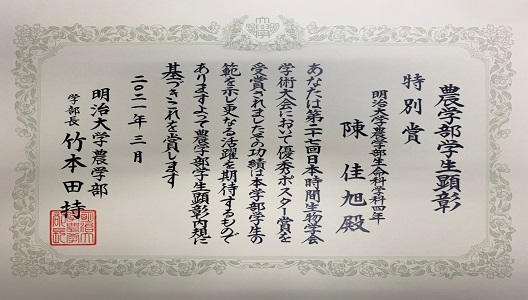 農学部学生顕彰
特別賞
明治大学農学部生命科学科四年
陳佳旭殿
あなたは第二十七回日本時間生物学会
学術大会において優秀ポスター賞を
受賞されましたその功績は本学部学生の
範を示し更なる活躍を期待するもので
ありますよって農学部学生顕彰内規に
基づきこれを賞します
二〇二一年三月
明治大学農学部
学部長 竹本田持